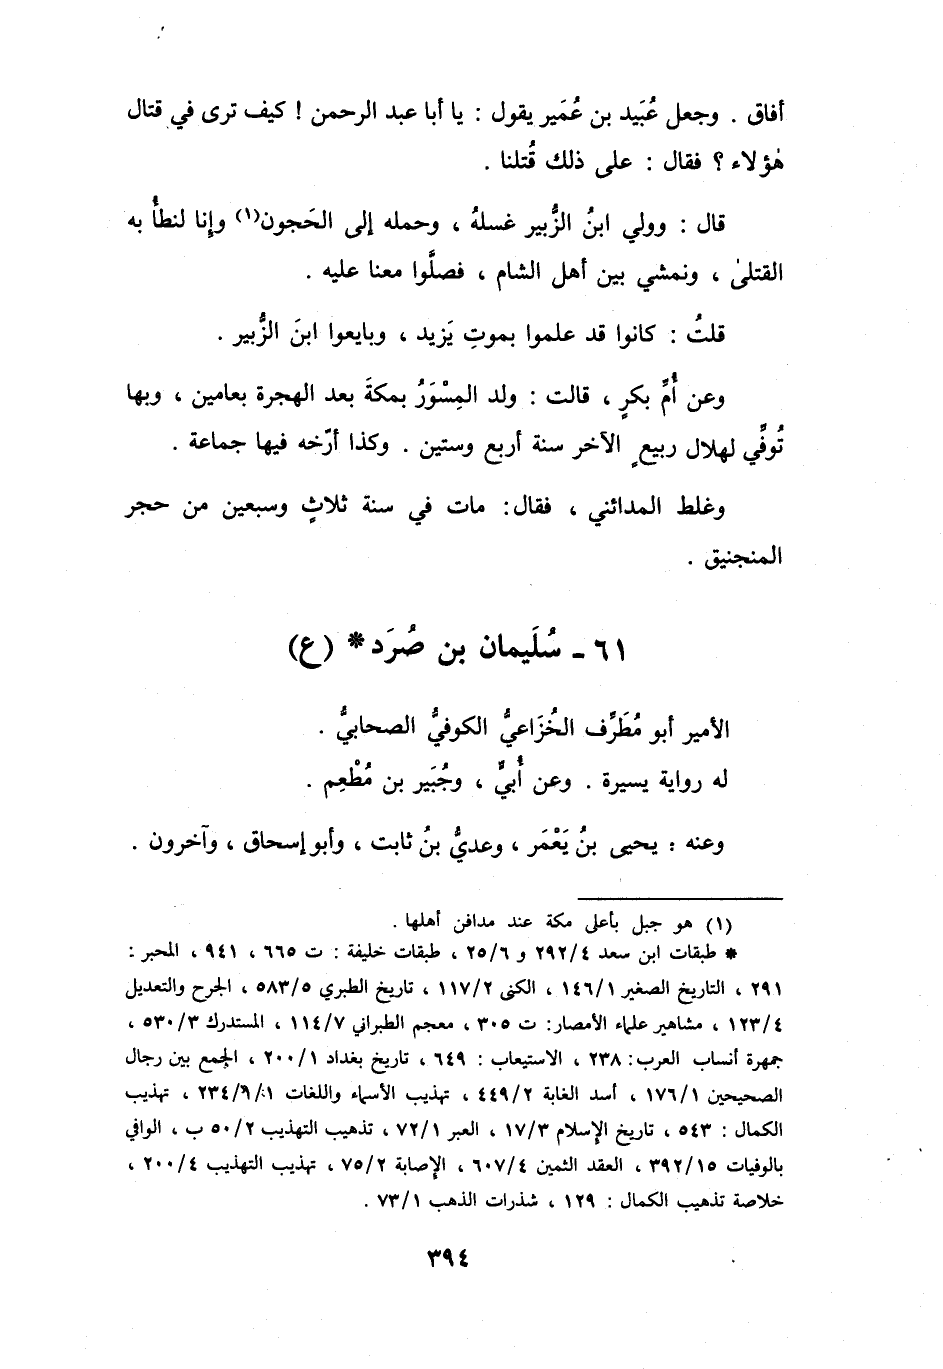 أفاق . وجعل عُبَيد بن عُمَير يقول : يا أبا عبد الرحمن ! كيف ترى في قتال
هٰؤلاء ؟ فقال : على ذلك قُتلنا .
قال : وولي ابنُ الزُّبير غسلهُ ، وحمله إلى الحَجون(١) وإنا لنطأُ به
القتلىٰ ، ونمشي بين أهل الشام ، فصلَّوا معنا عليه .
قلتُ : كانوا قد علموا بموتِ يَزيد ، وبايعوا ابنَ الزُّبير .
وعن أُمِّ بكرٍ ، قالت : ولد المِسْوَرُ بمكةَ بعد الهجرة بعامين ، وبها
تُوفِّي لهلال ربيعٍ الآخر سنة أربع وستين . وكذا أرّخه فيها جماعة .
وغلط المدائني ، فقال: مات في سنة ثلاثٍ وسبعين من حجر
المنجنيق .
٦١ - سُلَيمان بن صُرَد* (ع)
الأمير أبو مُطَرِّف الخُزَاعيُّ الكوفيُّ الصحابيُّ .
له رواية يسيرة . وعن أُبيٍّ ، وجُبَير بن مُطْعِم .
وعنه : يحيى بنُ يَعْمَر ، وعديُّ بنُ ثابت ، وأبو إسحاق ، وآخرون .
(١) هو جبل بأعلى مكة عند مدافن أهلها .
* طبقات ابن سعد ٢٩٢/٤ و ٢٥/٦ ، طبقات خليفة : ت ٦٦٥ ، ٩٤١ ، المحبر :
٢٩١ ، التاريخ الصغير ١٤٦/١ ، الكنى ١١٧/٢ ، تاريخ الطبري ٥٨٣/٥ ، الجرح والتعديل
١٢٣/٤ ، مشاهير علماء الأمصار: ت ٣٠٥ ، معجم الطبراني ١١٤/٧ ، المستدرك ٥٣٠/٣ ،
جمهرة أنساب العرب: ٢٣٨ ، الاستيعاب : ٦٤٩ ، تاريخ بغداد ٢٠٠/١ ، الجمع بين رجال
الصحيحين ١٧٦/١ ، أسد الغابة ٤٤٩/٢ ، تهذيب الأسماء واللغات ٢٣٤/١/١ ، تهذيب
الكمال : ٥٤٣ ، تاريخ الإسلام ١٧/٣ ، العبر ٧٢/١ ، تذهيب التهذيب ٥٠/٢ ب ، الوافي
بالوفيات ٣٩٢/١٥ ، العقد الثمين ٦٠٧/٤ ، الإصابة ٧٥/٢ ، تهذيب التهذيب ٢٠٠/٤ ،
خلاصة تذهيب الكمال : ١٢٩ ، شذرات الذهب ٧٣/١ .
٣٩٤